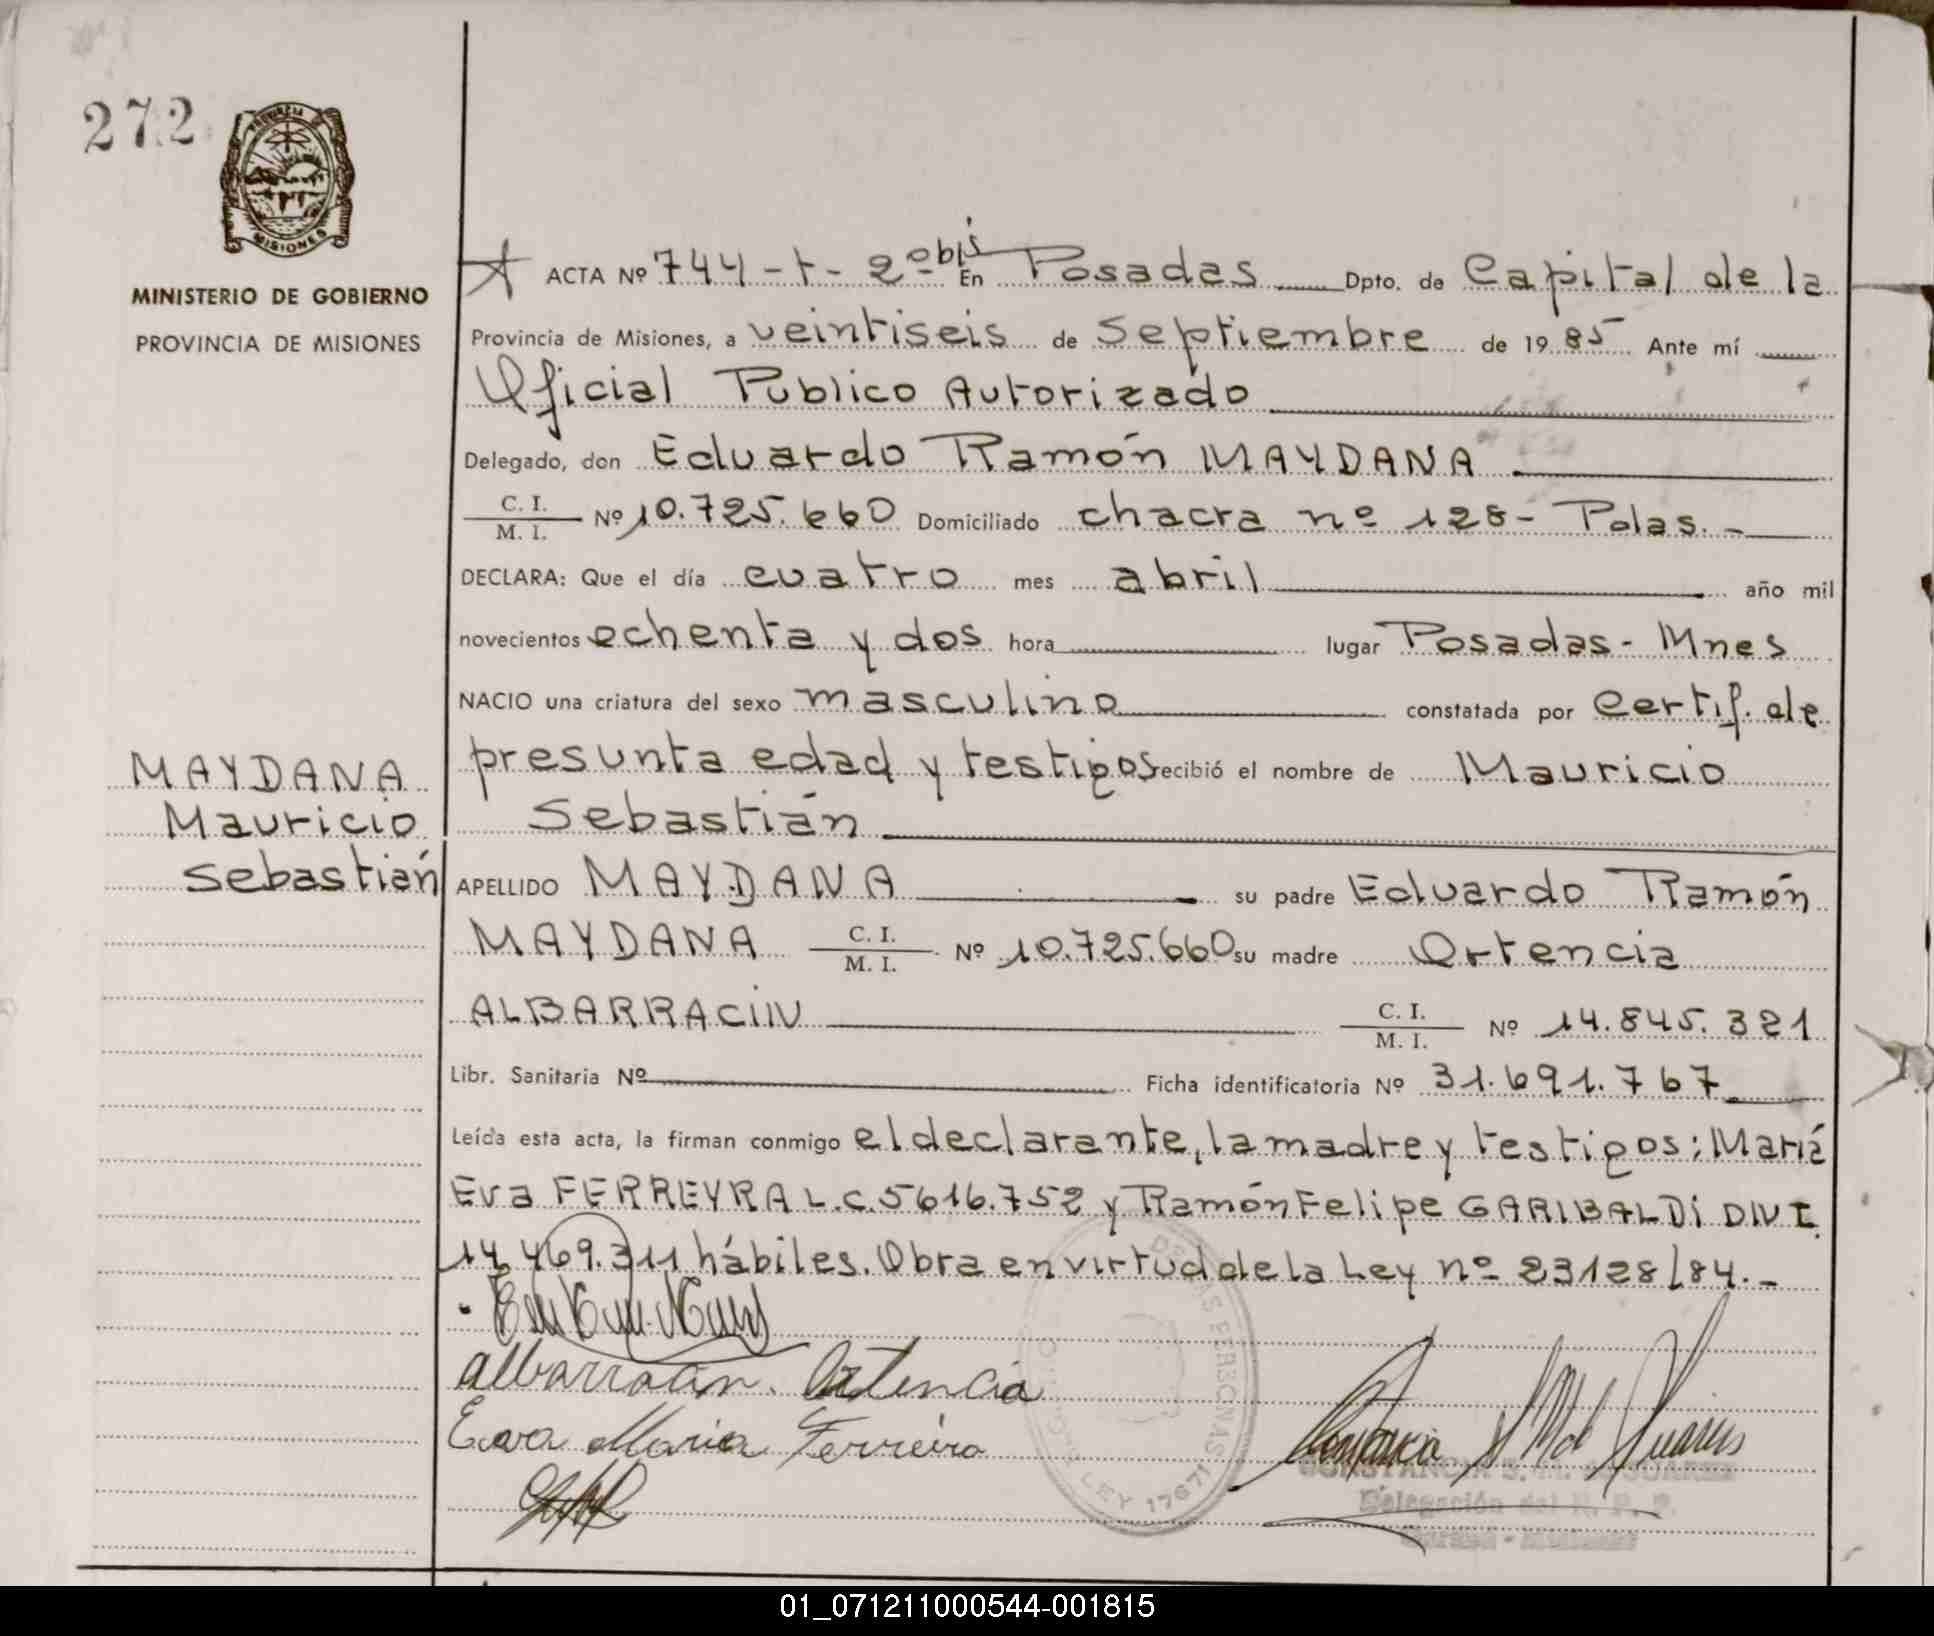 272
PROVINCIA
MISIONES
MINISTERIO DE GOBIERNO
PROVINCIA DE MISIONES
ACTA Nº 744-t-2º bis En Posadas Dpto. de Capital de la
Provincia de Misiones, a veintiseis de Septiembre de 1985 Ante mí
Oficial Publico Autorizado
Delegado, don Eduardo Ramón MAYDANA
C. I.
M. I. Nº 10.725.660 Domiciliado chacra nº 128- Pdas.-
DECLARA: Que el día cuatro mes abril año mil
novecientos ochenta y dos hora lugar Posadas- Mnes
NACIO una criatura del sexo masculino constatada por Certif. de
presunta edad y testigos recibió el nombre de Mauricio
Sebastián
MAYDANA
Mauricio
Sebastián
APELLIDO MAYDANA su padre Eduardo Ramón
MAYDANA C. I. M. I. Nº 10.725.660 su madre Ortencia
ALBARRACIN C. I. M. I. Nº 14.845.321
Libr. Sanitaria Nº Ficha identificatoria Nº 31.691.767
Leída esta acta, la firman conmigo el declarante, la madre y testigos: Mariá
Eva FERREYRA L.C. 5616.752 y Ramón Felipe GARIBALDI DNI
14.469.311 hábiles. Obra en virtud de la Ley nº 23128/84.-
Albarracin. Ortencia
Eva Maria Ferreira
DE LAS PERSONAS
LEY 17671
CONSTANCIA S. M. de SUAREZ
Delegación del R. P. P.
01_071211000544-001815